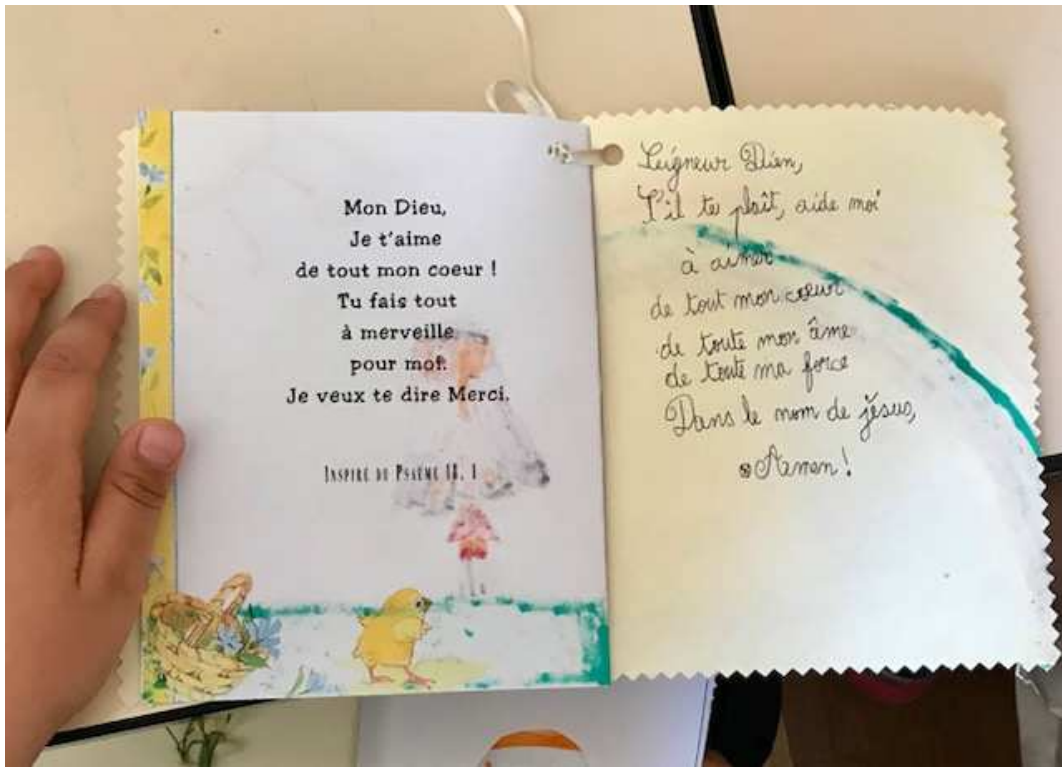 Mon Dieu,
Je t'aime
de tout mon coeur !
Tu fais tout
à merveille
pour moi.
Je veux te dire Merci.
Inspiré du Psaume 18, 1
Seigneur Dieu,
S'il te plaît, aide moi
à aimer
de tout mon cœur
de toute mon âme
de toute ma force
Dans le nom de jésus,
Amen !